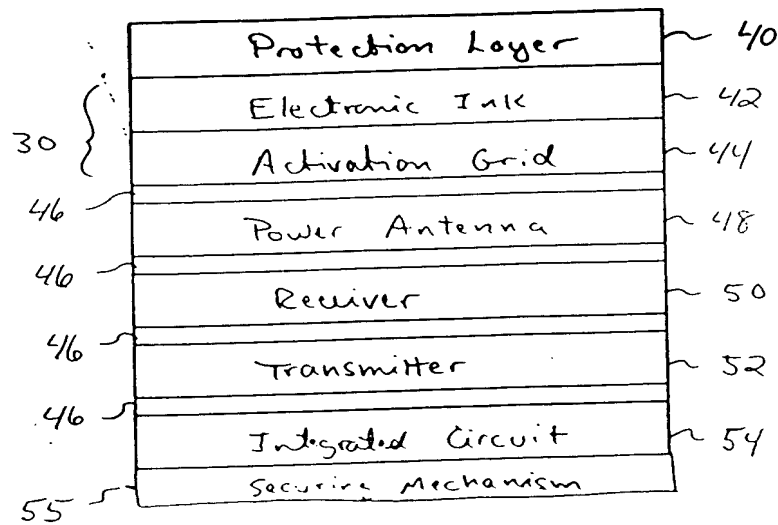 Protection Layer 40
Electronic Ink 42
30
Activation Grid 44
46
Power Antenna 48
46
Receiver 50
46
Transmitter 52
46
Integrated Circuit 54
55 Securing Mechanism